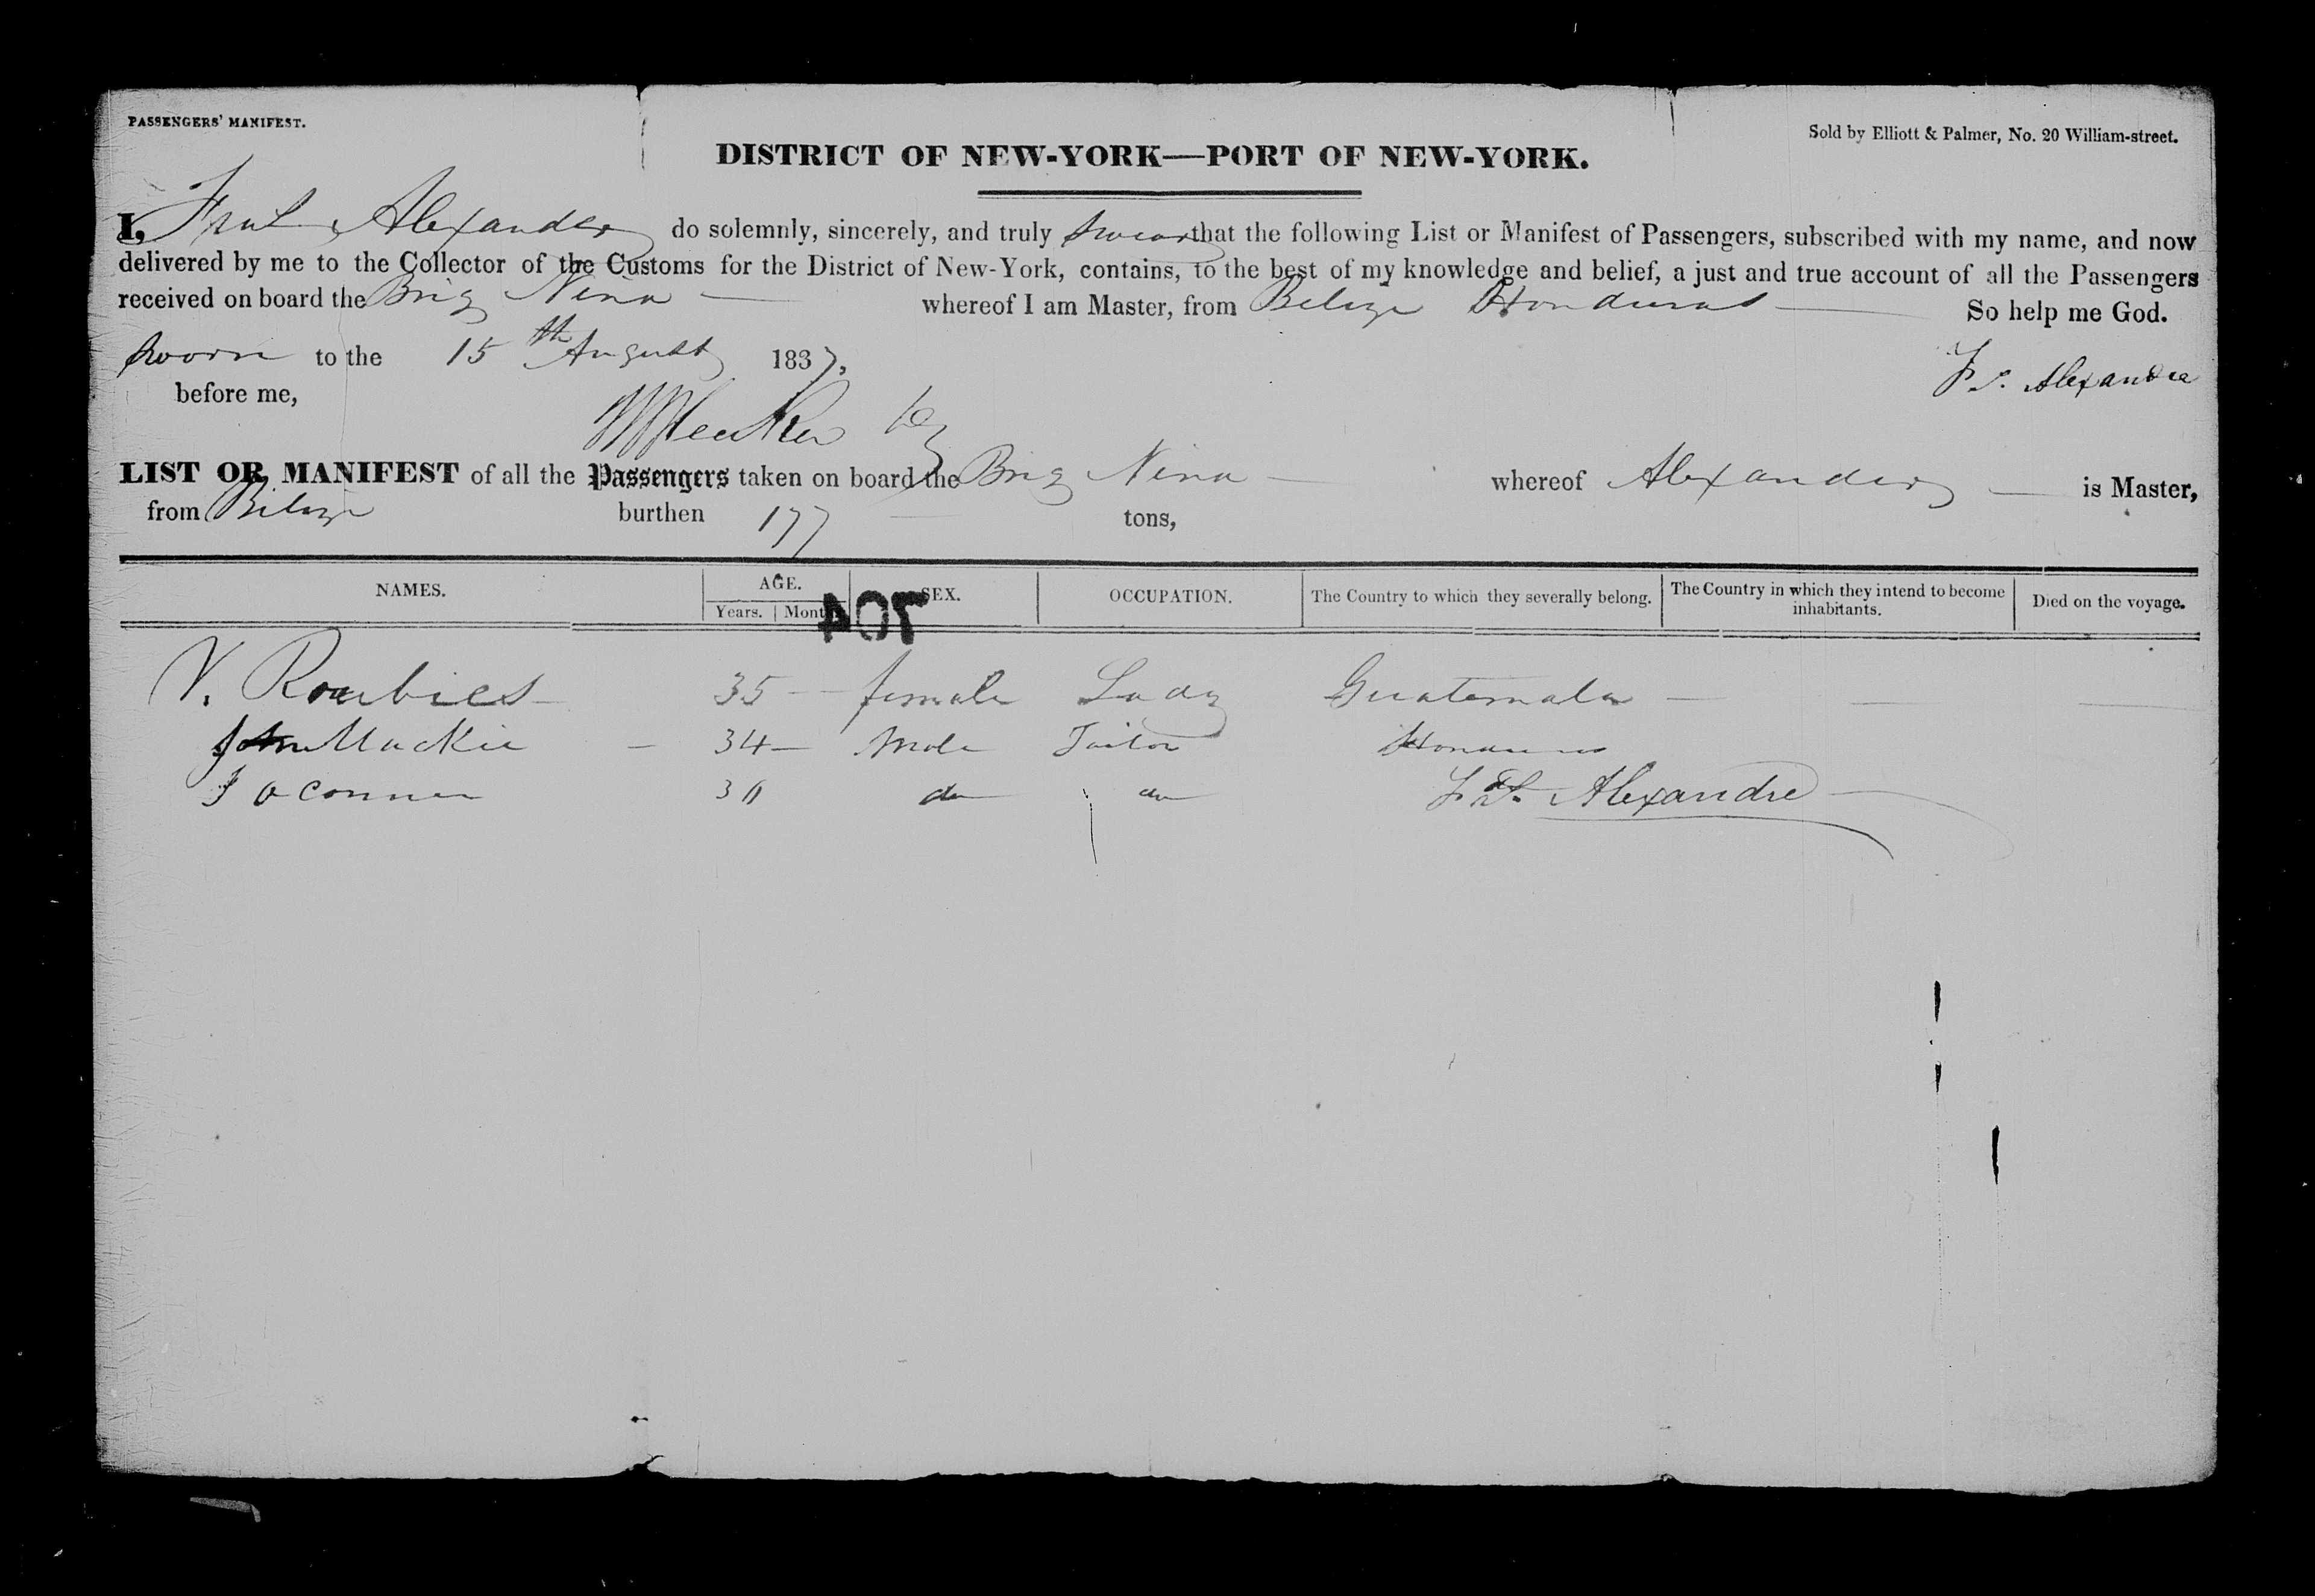 PASSENGERS' MANIFEST.
Sold by Elliott & Palmer, No. 20 William-street.
DISTRICT OF NEW-YORK—PORT OF NEW-YORK.
I, Alexander do solemnly, sincerely, and truly swear that the following List or Manifest of Passengers, subscribed with my name, and now
delivered by me to the Collector of the Customs for the District of New-York, contains, to the best of my knowledge and belief, a just and true account of all the Passengers
received on board the Brig Nina — whereof I am Master, from Belize Honduras — So help me God.
Sworn to the 15th August 1837.
before me,
Alexandre
LIST OR MANIFEST of all the Passengers taken on board the Brig Nina — whereof Alexander — is Master,
from Belize burthen 177 — tons,
NAMES. AGE. SEX. OCCUPATION. The Country to which they severally belong. The Country in which they intend to become inhabitants. Died on the voyage.
Years. Mont
704
V. 35 — female Lady Guatemala — — —
John Mackie — 34 — Male Tailor Honduras
J O Conner 30 do do
Alexandre